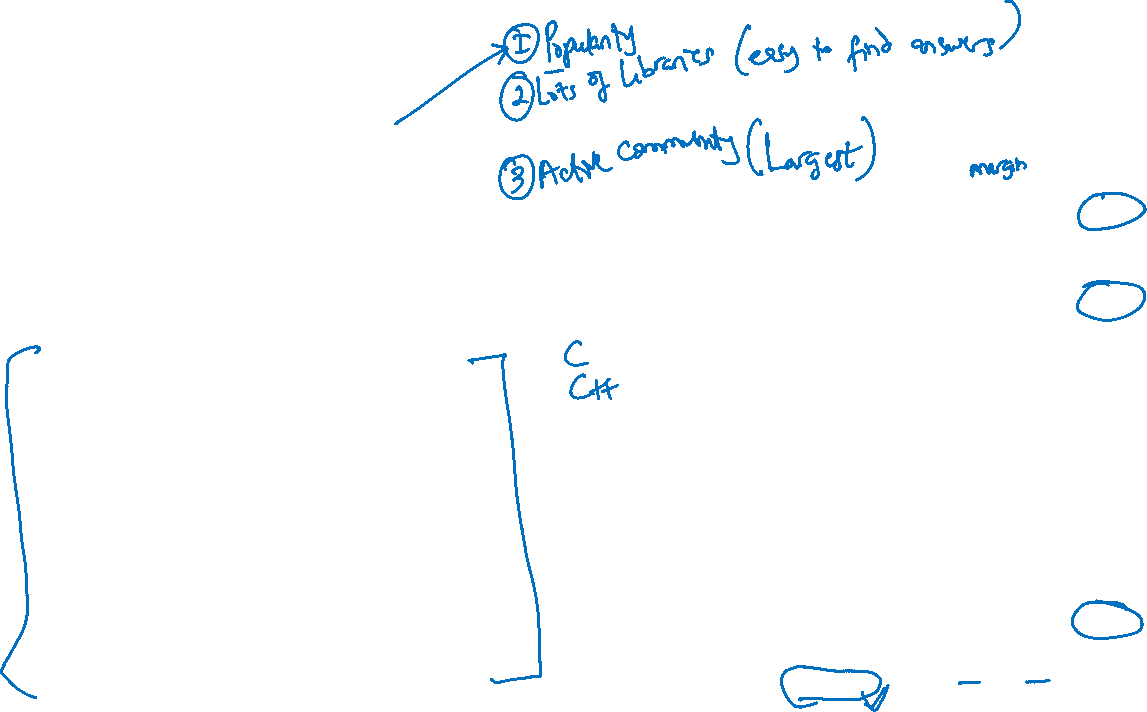 ① Popularity
② Lots of Libraries (easy to find answers)
③ Active Community (Largest)
margin
C
C++